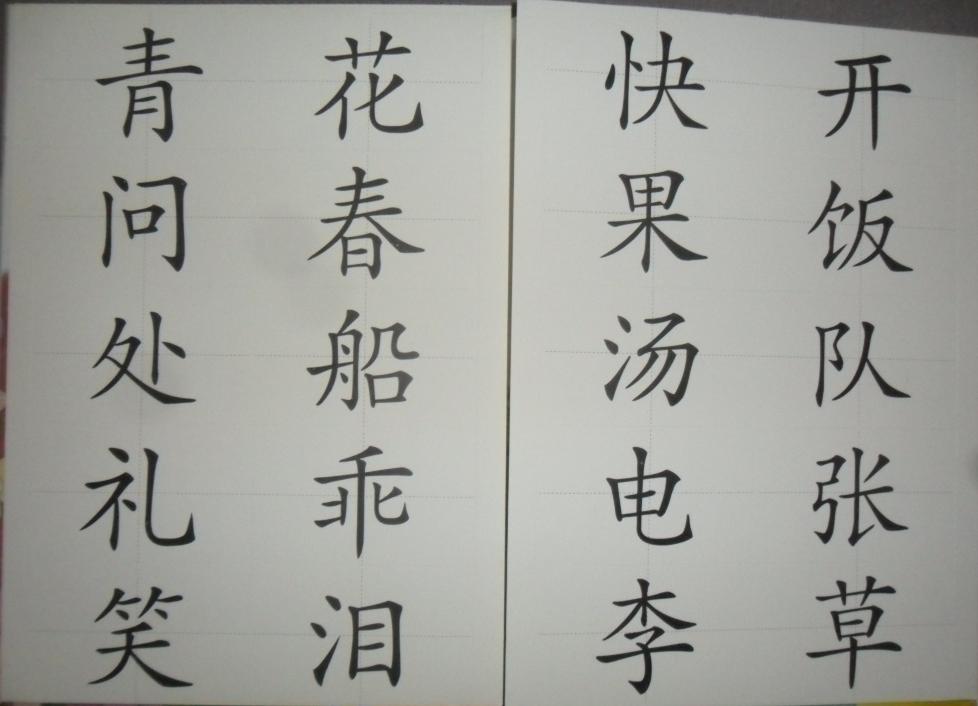 青 花 快 开
问 春 果 饭
处 船 汤 队
礼 乖 电 张
笑 泪 李 草